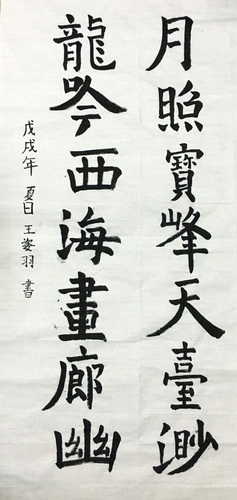 月照寶峰天臺渺
龍吟西海畫廊幽
戊戌年 夏日 王姿羽 書